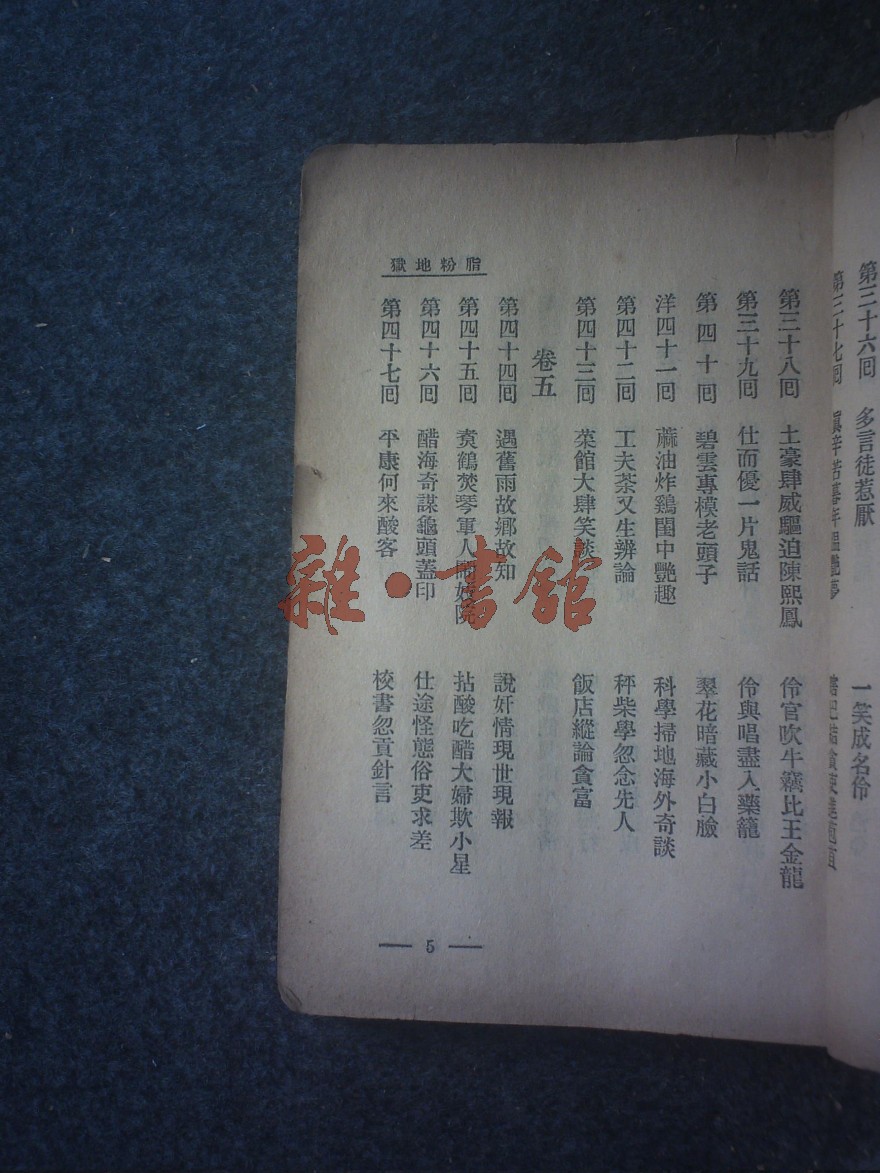 第三十六囘 多言徒惹厭 一笑成名伶
第三十七囘
第三十八囘 土豪肆威驅迫陳熙鳳 伶官吹牛竊比王金龍
第三十九囘 仕而優一片鬼話 伶與唱盡入藥籠
第四十囘 碧雲專模老頭子 翠花暗藏小白臉
洋四十一囘 蔴油炸鷄閨中艷趣 科學掃地海外奇談
第四十二囘 工夫茶又生辨論 秤柴學忽念先人
第四十三囘 菜館大肆笑談 飯店縱論貪富
卷五
第四十四囘 遇舊雨故鄉故知 說奸情現世現報
第四十五囘 焚琴軍人鬧妓院 拈酸吃醋大婦欺小星
第四十六囘 醋海奇謀龜頭蓋印 仕途怪態俗吏求差
第四十七囘 平康何來酸客 校書忽貢針言
獄地粉脂
5
雜·書館